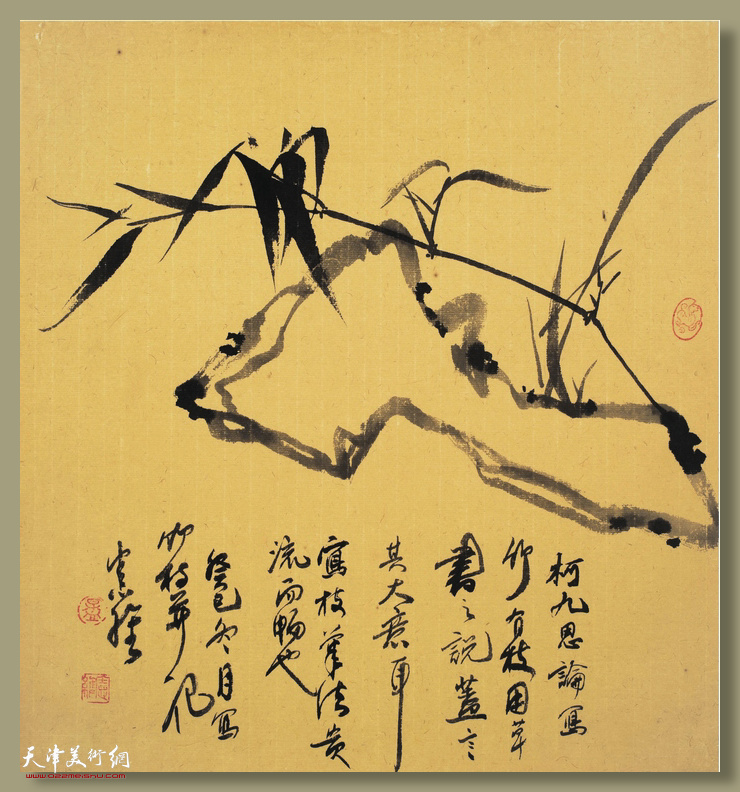 柯九思論寫
竹有枝用草
書之說蓋言
其大意耳
寫枝筆法貴
流而暢也
癸巳冬月寫
竹枝并记
天津美術網
www.022meishu.com